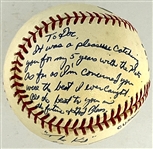 To Doc,
It was a pleasure catching
you for my 5 years with the Mets
as far as I'm concerned you
were the best I ever caught
all the best to you in
the future